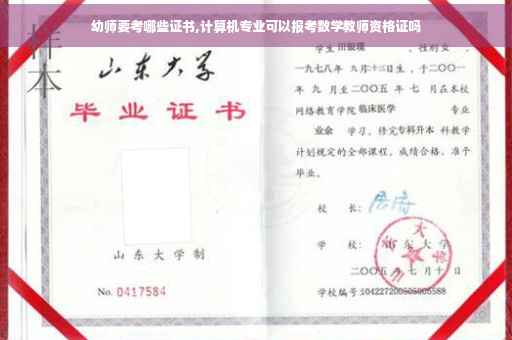 幼师要考哪些证书,计算机专业可以报考数学教师资格证吗
样本
山东大学
毕业证书
山东大学制
No. 0417584
学生
性别女，
一九七八年 九月十三日生，于二〇〇一
年 九 月至二〇〇五 年 七 月在本校
网络教育学院 临床医学 专业
业余 学习，修完专科升本 科教学
计划规定的全部课程，成绩合格，准予
毕业。
校 长：
学 校：山东大学
二〇〇五 年 七 月 十 日
学校编号: